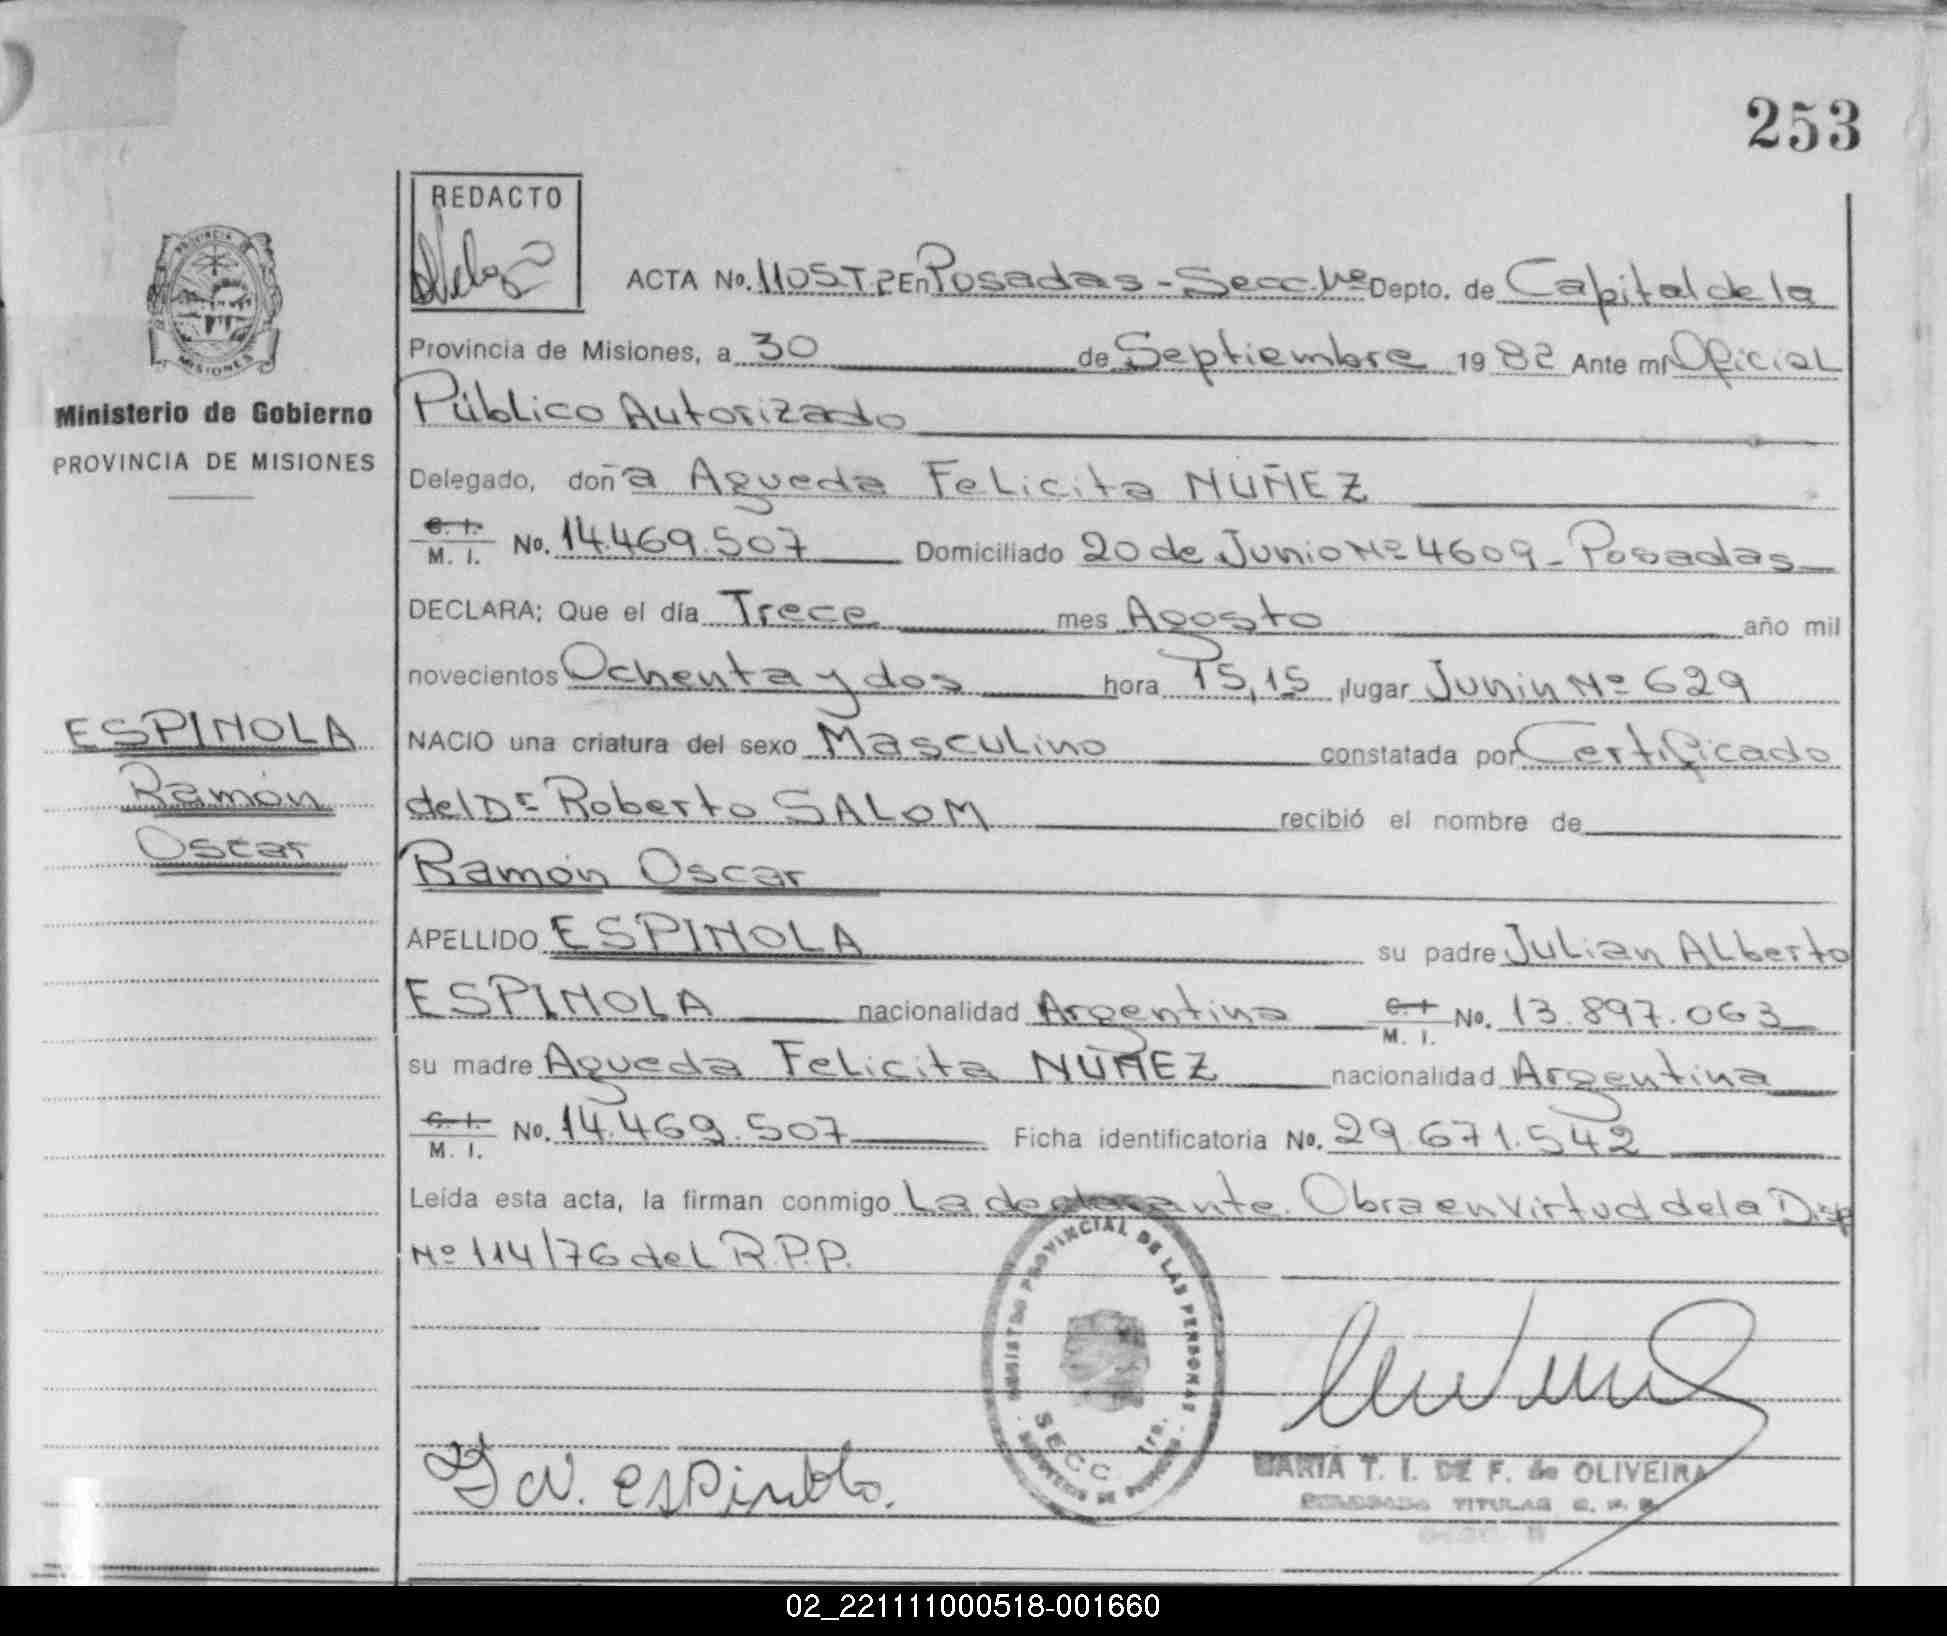 253
REDACTO
PROVINCIA DE
MISIONES
Ministerio de Gobierno
PROVINCIA DE MISIONES
ACTA No. 1105 T 2 En Posadas - Secc. 1ª Depto. de Capital de la
Provincia de Misiones, a 30 de Septiembre 1982 Ante mí Oficial
Público Autorizado
Delegado, doña Agueda Felicita NUÑEZ
C. I.
M. I. No. 14.469.507 Domiciliado 20 de Junio Nº 4609 - Posadas
DECLARA; Que el día Trece mes Agosto año mil
novecientos Ochenta y dos hora 15,15 lugar Junin Nº 629
NACIO una criatura del sexo Masculino constatada por Certificado
del Dr Roberto SALOM recibió el nombre de
Ramón Oscar
APELLIDO ESPINOLA su padre Julian Alberto
ESPINOLA nacionalidad Argentina C. I.
M. I. No. 13.897.063
su madre Agueda Felicita NUÑEZ nacionalidad Argentina
C. I.
M. I. No. 14.469.507 Ficha identificatoria No. 29.671.542
Leída esta acta, la firman conmigo La declarante. Obra en virtud de la Disp
Nº 114/76 del R.P.P.
ESPINOLA
Ramón
Oscar
REGISTRO PROVINCIAL DE LAS PERSONAS
SECC. 1ra.
MARIA T. I. DE F. de OLIVEIRA
DELEGADA TITULAR
02_221111000518-001660